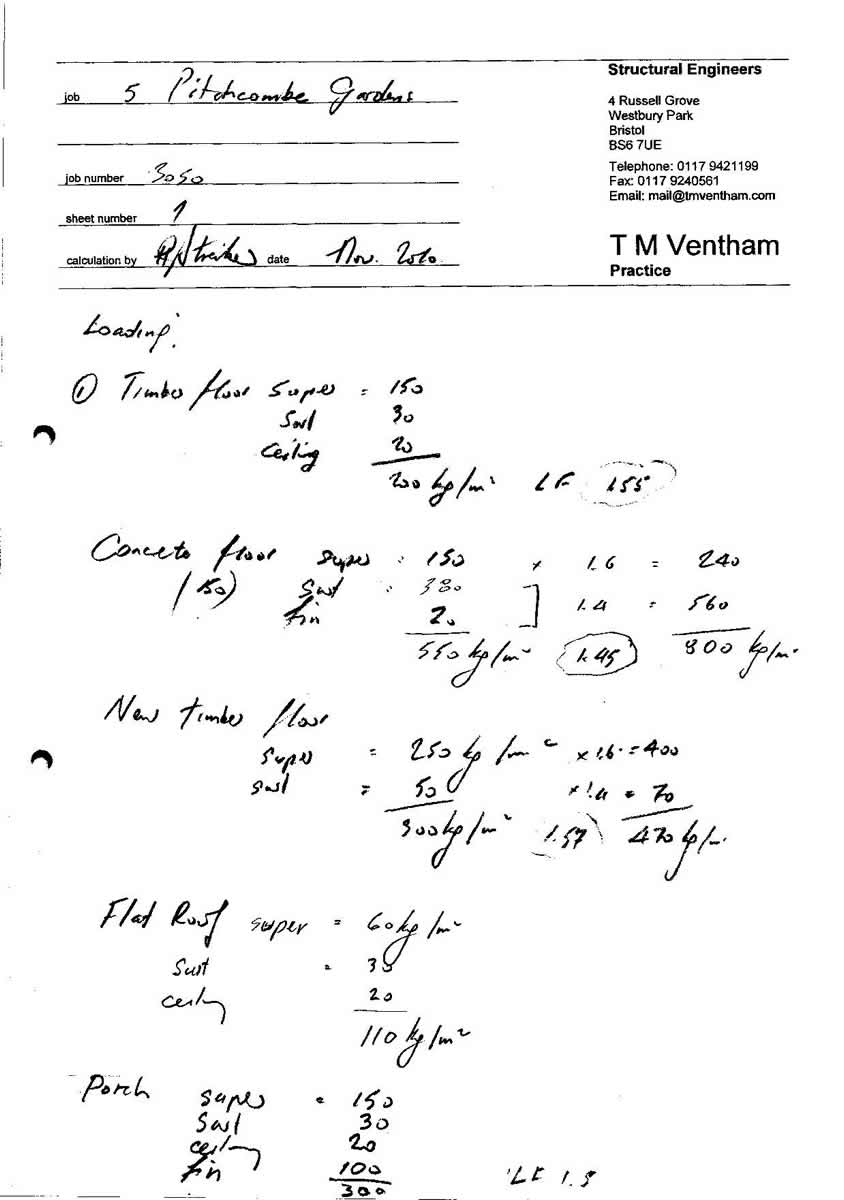 Structural Engineers
job 5 Pitchcombe Gardens
4 Russell Grove
Westbury Park
Bristol
BS6 7UE
job number 3050
Telephone: 0117 9421199
Fax: 0117 9240561
Email: mail@tmventham.com
sheet number 1
calculation by date Nov. 2010
T M Ventham
Practice
Loading.
① Timber floor Super = 150
Swt 30
Ceiling 20
200 kg/m² LF 1.55
Concrete floor super : 150 × 1.6 = 240
(150) Swt : 380
fin 20 ] 1.4 = 560
550 kg/m² 1.45 800 kg/m
New timber floor
Super = 250 kg/m² × 1.6 = 400
swt = 50 × 1.4 = 70
300 kg/m² 1.57 470 kg/m
Flat Roof super = 60 kg/m²
Swt = 30
ceiling 20
110 kg/m²
Porch super = 150
Swt 30
ceiling 20
fin 100
300 LF 1.5